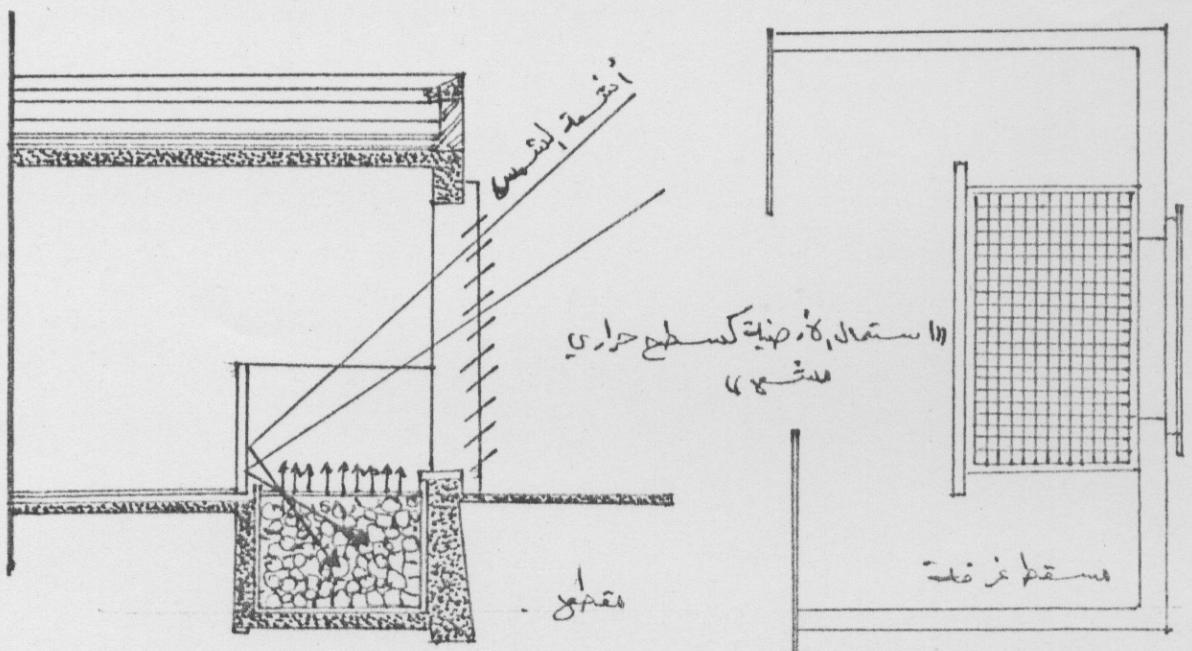 أشعة الشمس
استعمال الأرضية كسطح حراري
مقطع
مسقط غرفة